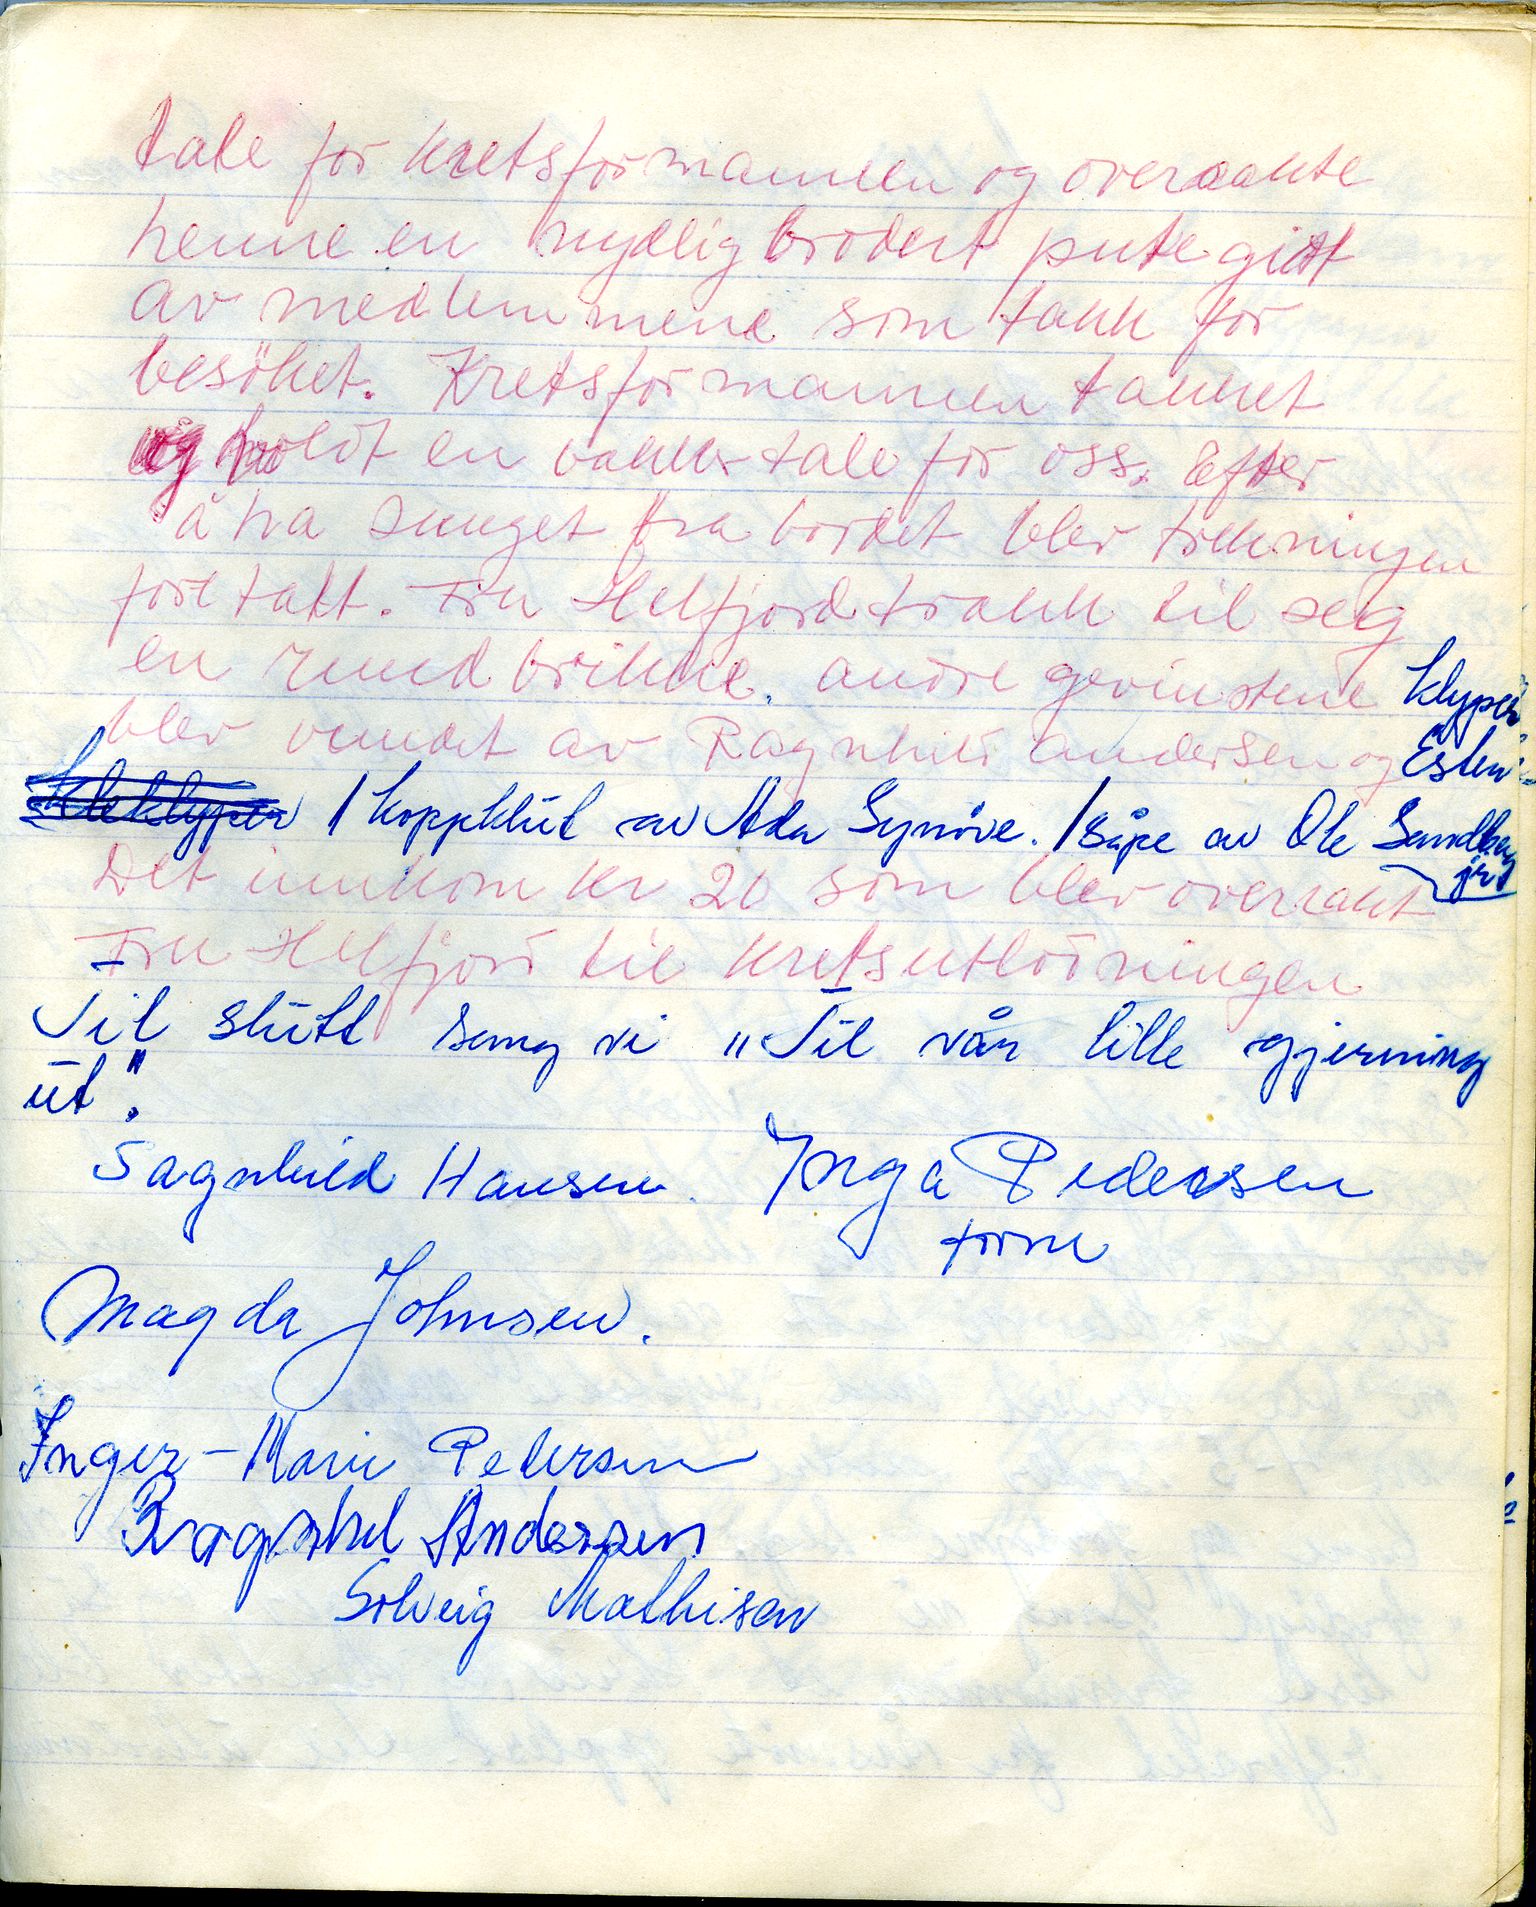 tale for kretsformannen og overrakte
henne en nydlig brodert pute gitt
av medlemmene som takk for
besöket. Kretsformannen takket
og holdt en vakker tale for oss. Efter
å ha sunget fra bordet blev trekningen
foretatt. Fru Helfjord trakk til seg
en rund brikke, andre gevinstene klyper
blev vundet av Ragnhild Andersen og Esten
Kleklyper / koppklut av Ada Synöve. / såpe av Ole Sandberg
jr
Det innkom kr 20 som blev overrakt
Fru Helfjord til kretsutlodningen
Til slutt sang vi "Til vår lille gjerning
ut".
Sagnhild Hansen. Ynga Pedersen
form
Magda Johnsen.
Inger-Marie Petersen
Ragnhil Andersen
Solveig Mathisen